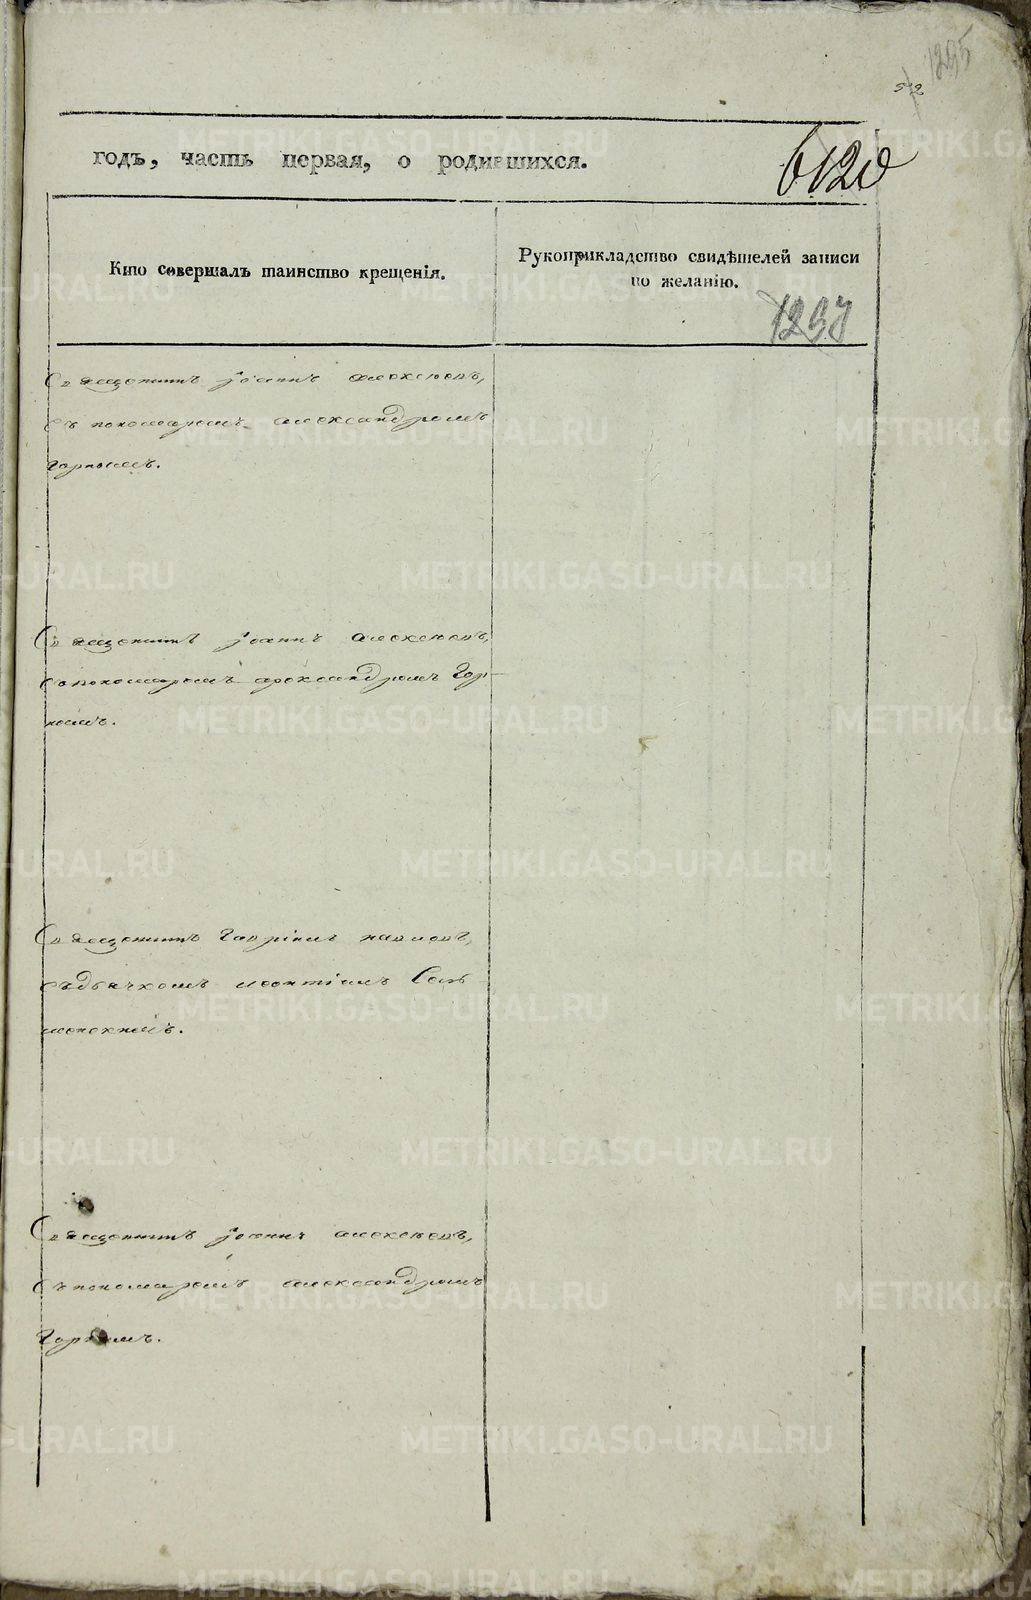 1295
512
годъ, часть первая, о родившихся.
612
Кто совершалъ таинство крещенія.
Рукоприкладство свидѣтелей записи
по желанію.
1297
Священникъ Іоаннъ Алексѣевъ,
съ пономаремъ Александромъ
Горнымъ.
Священникъ Іоаннъ Алексѣевъ,
съ пономаремъ Александромъ Гор-
нымъ.
Священникъ Гавріилъ Павловъ,
съ дьячкомъ Леонтіемъ
Священникъ Іоаннъ Алексѣевъ,
съ пономаремъ Александромъ
Горнымъ.
METRIKI.GASO-URAL.RU